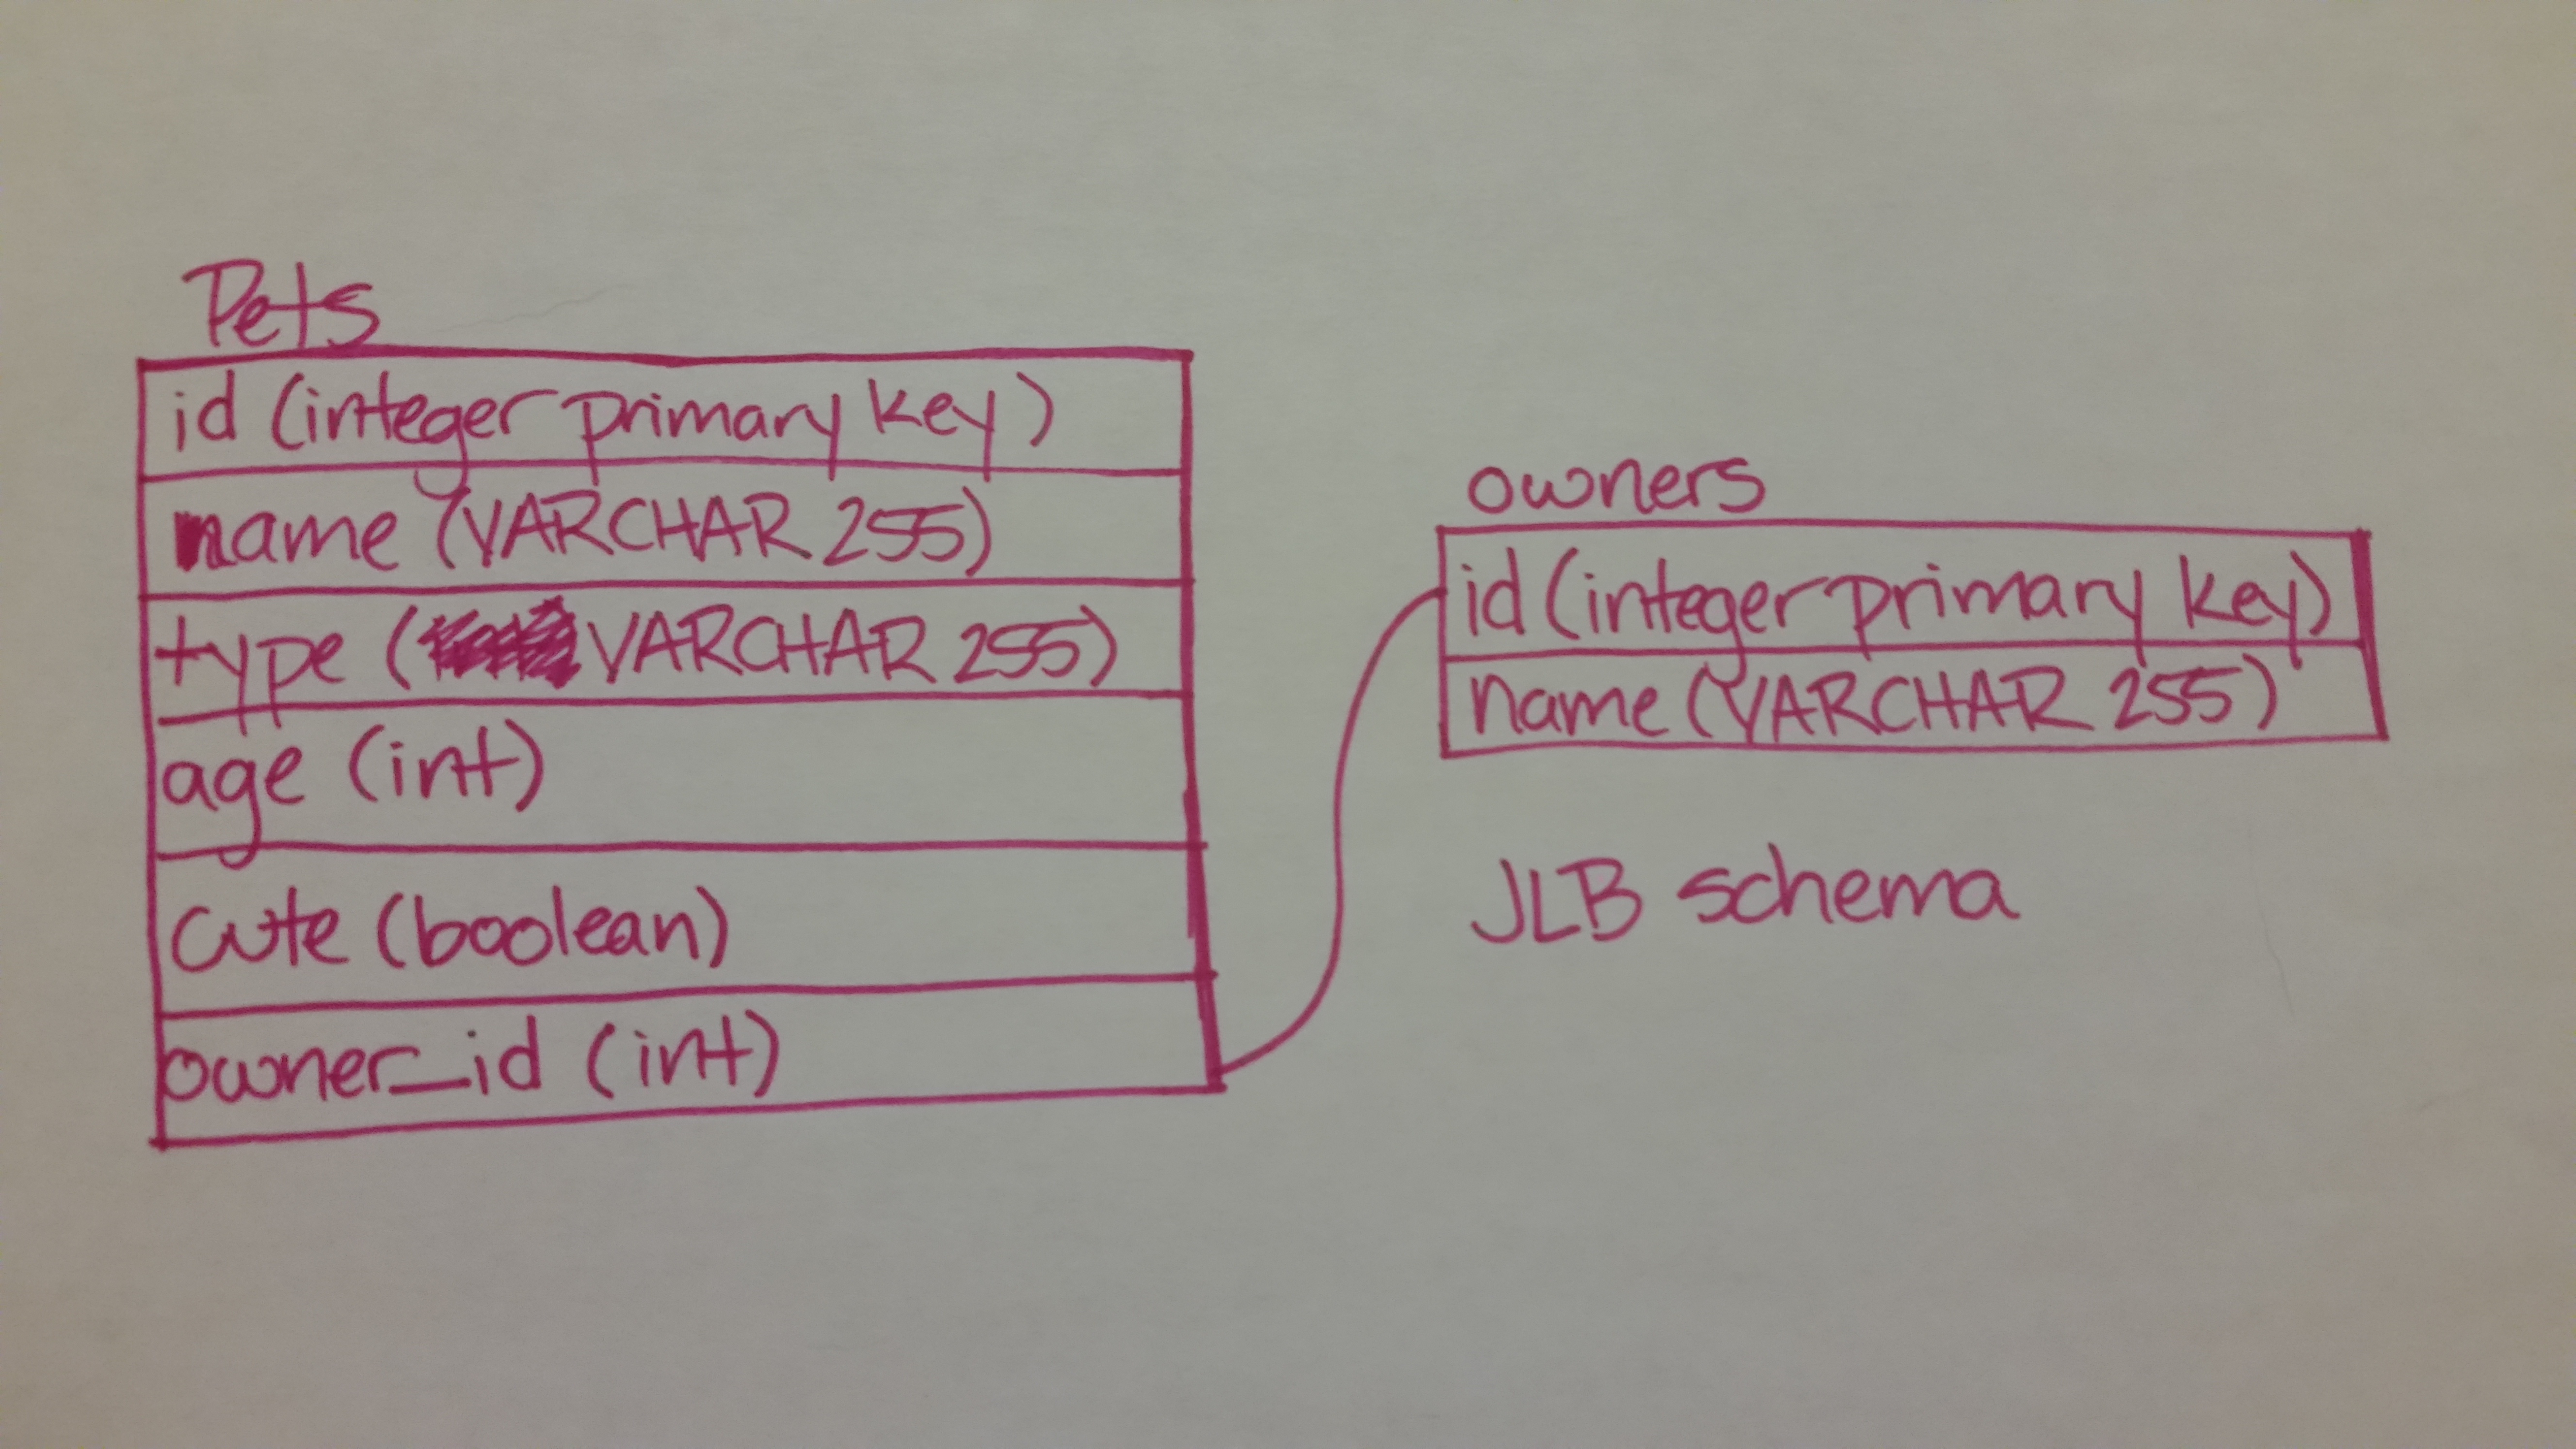 Pets
id (integer primary key)
name (VARCHAR 255)
type (VARCHAR 255)
age (int)
cute (boolean)
owner_id (int)
owners
id (integer primary key)
name (VARCHAR 255)
JLB schema